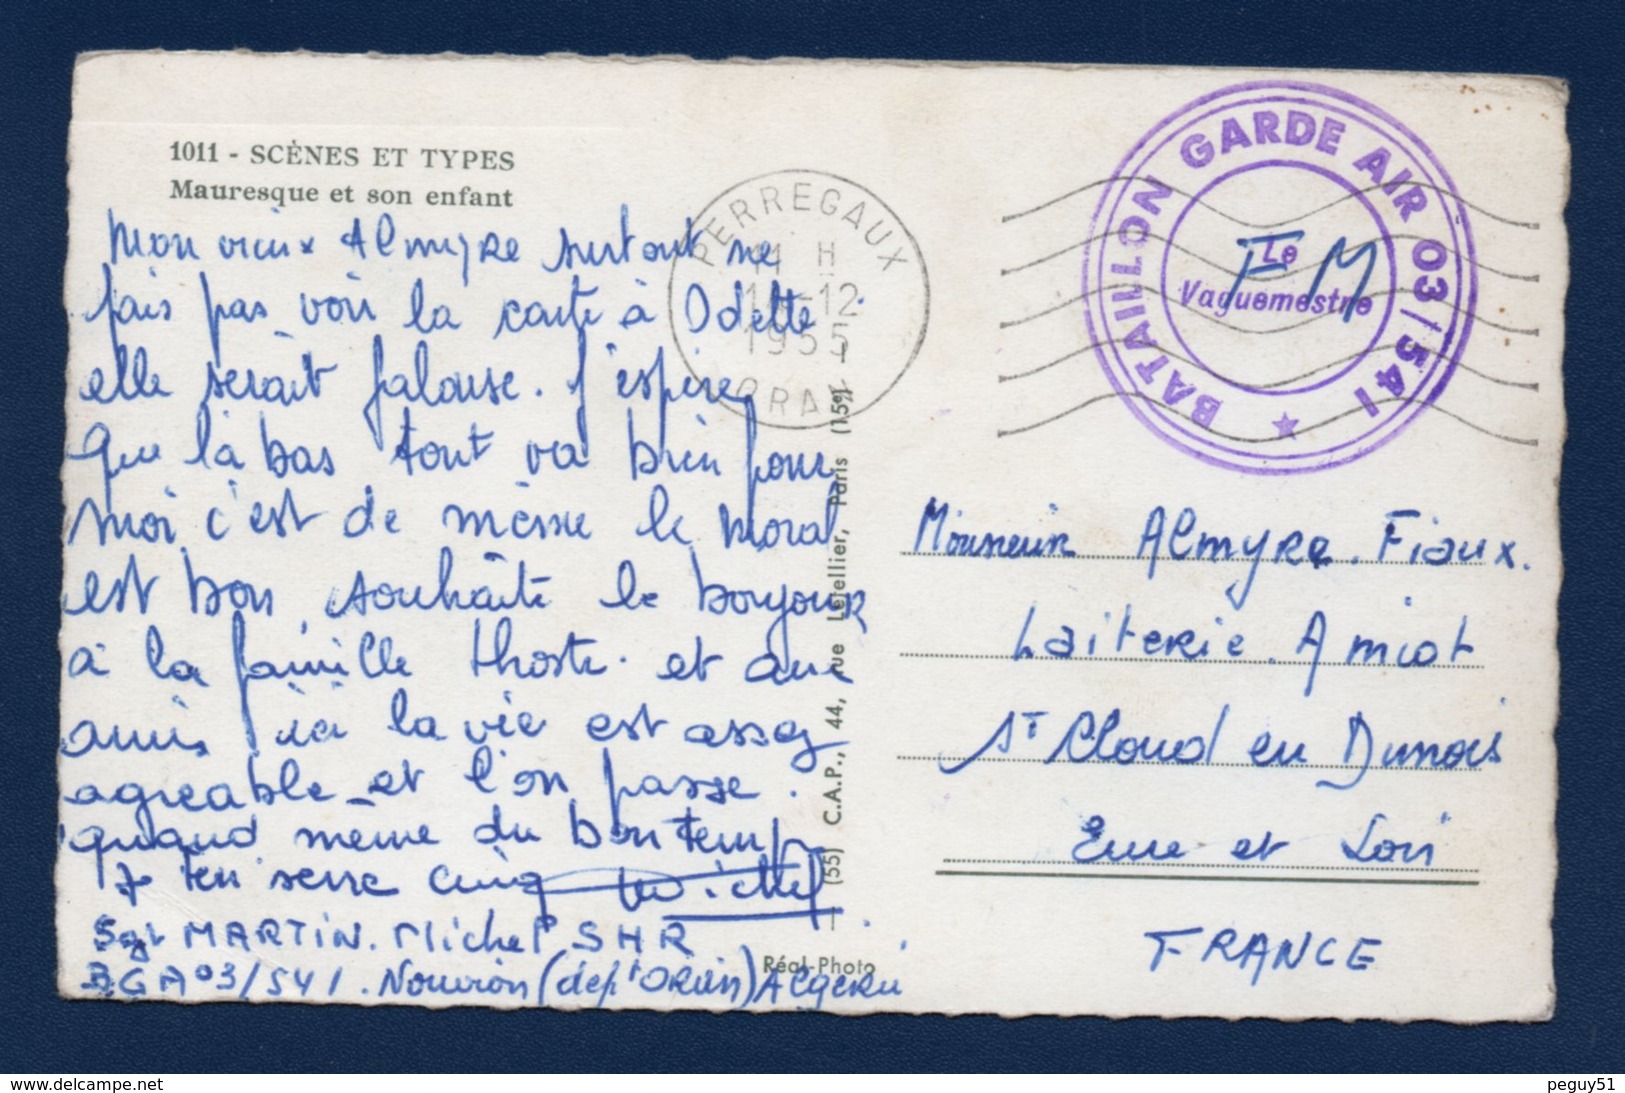 1011 - SCÈNES ET TYPES
Mauresque et son enfant
Mon vieux Almyre surtout ne
fais pas voir la carte à Odette
elle serait jalouse. J'espère
que là bas tout va bien pour
moi c'est de même le moral
est bon souhaite le bonjour
à la famille Thoste. et aux
amis, ici la vie est assez
agreable et l'on passe.
quand meme du bon temps
Je t'en serre cinq Michel
Sgt MARTIN. Michel SHR
BGA 03/541. Nouvion (dept Oran) Algerie
PERREGAUX
11 H
14-12
1955
ORAN
BATAILLON GARDE AIR 03/541
Le
Vaguemestre
FM
C.A.P., 44, rue Letellier, Paris (15e)
(55)
Réal-Photo
Monsieur Almyre. Fiaux.
Laiterie. Amiot
St Cloud en Dunois
Eure et Loir
FRANCE
peguy51
delcampe.net